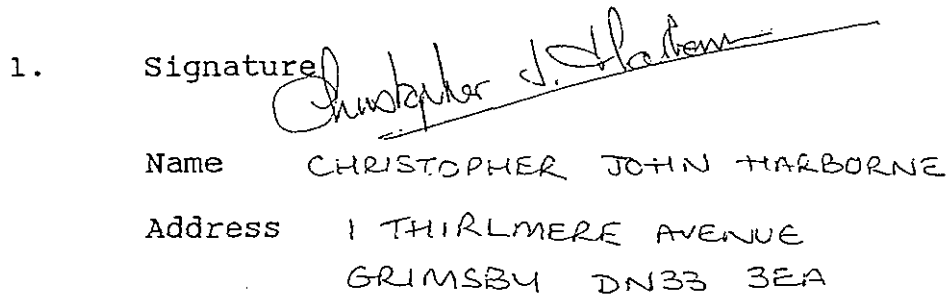 1. Signature Christopher J. Harborne
Name CHRISTOPHER JOHN HARBORNE
Address 1 THIRLMERE AVENUE
GRIMSBY DN33 3EA